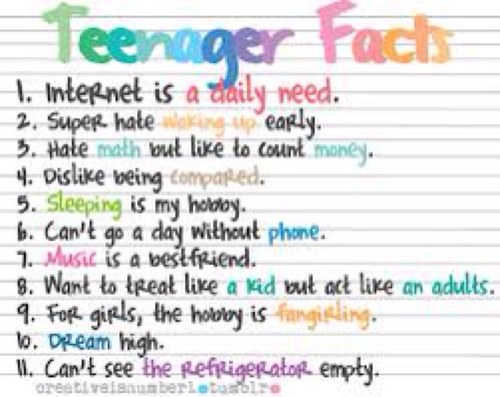 Teenager Facts
1. Internet is a daily need.
2. Super hate waking up early.
3. Hate math but like to count money.
4. Dislike being compared.
5. Sleeping is my hobby.
6. Can't go a day without phone.
7. Music is a bestfriend.
8. Want to treat like a kid but act like an adults.
9. For girls, the hobby is fangirling.
10. Dream high.
11. Can't see the refrigerator empty.
creativeisnumber1.tumblr